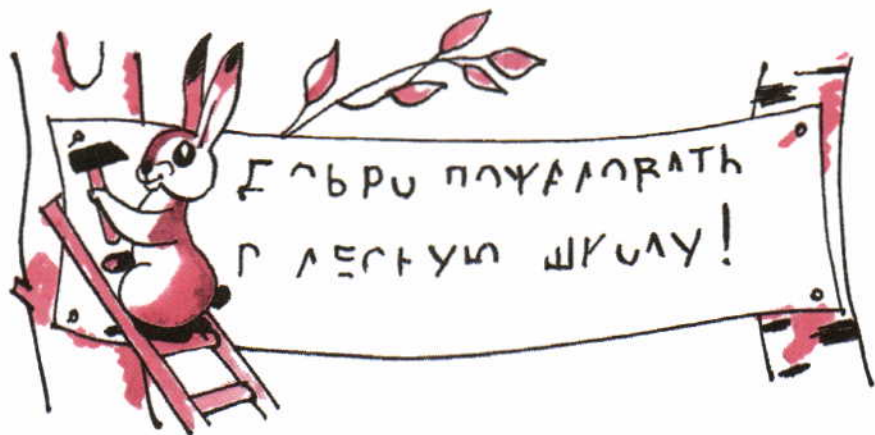 Добро пожаловать
в лесную школу!